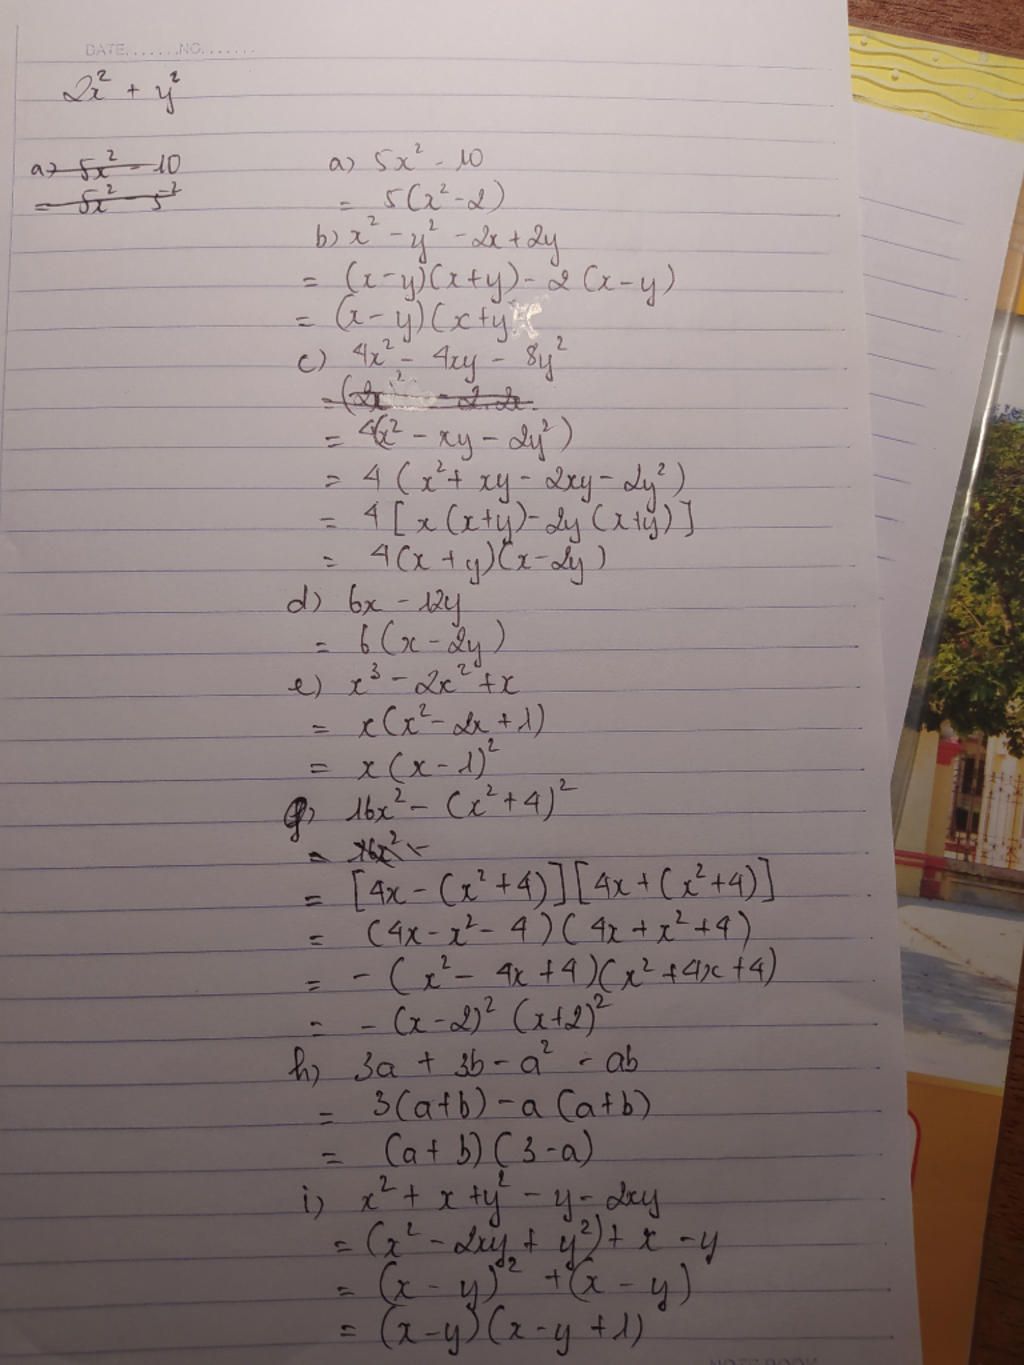 DATE.......NO.......
2x² + y²
a) 5x² - 10
= 5x² 5⁻²
a) 5x² - 10
= 5(x² - 2)
b) x² - y² - 2x + 2y
= (x - y)(x + y) - 2(x - y)
= (x - y)(x + y
c) 4x² - 4xy - 8y²
= (2x² - 2.2x.
= 4(x² - xy - 2y²)
= 4(x² + xy - 2xy - 2y²)
= 4[x(x+y) - 2y(x+y)]
= 4(x + y)(x - 2y)
d) 6x - 12y
= 6(x - 2y)
e) x³ - 2x² + x
= x(x² - 2x + 1)
= x(x - 1)²
g) 16x² - (x² + 4)²
= 16x² -
= [4x - (x² + 4)][4x + (x² + 4)]
= (4x - x² - 4)(4x + x² + 4)
= - (x² - 4x + 4)(x² + 4x + 4)
= - (x - 2)² (x + 2)²
h) 3a + 3b - a² - ab
= 3(a+b) - a(a+b)
= (a + b)(3 - a)
i) x² + x + y² - y - 2xy
= (x² - 2xy + y²) + x - y
= (x - y)² + (x - y)
= (x - y)(x - y + 1)